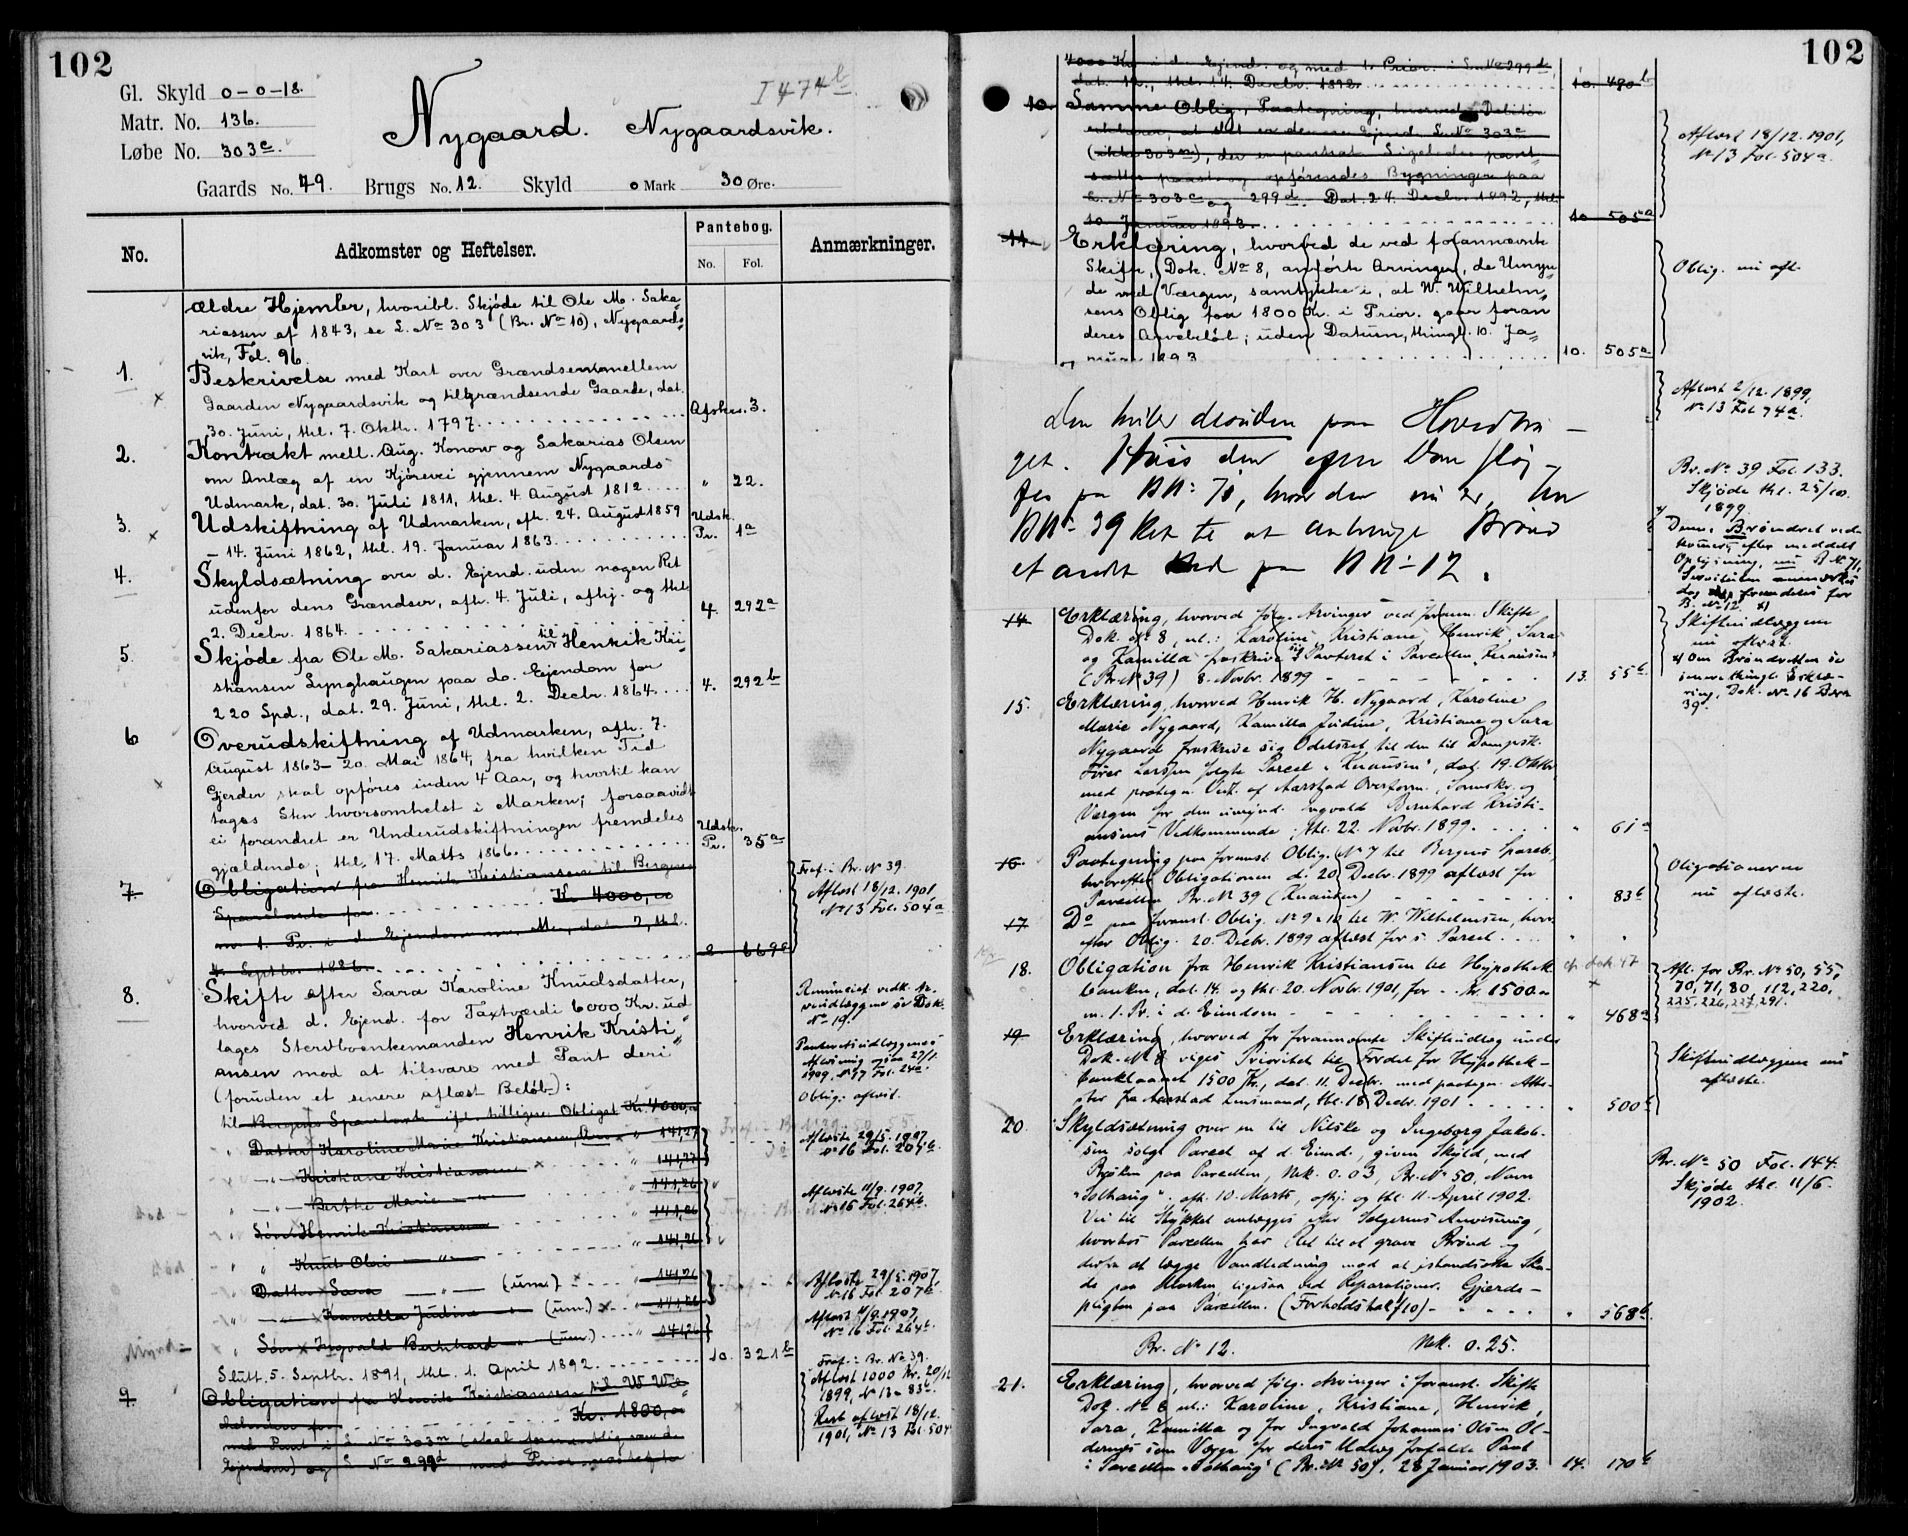 102
Gl. Skyld 0-0-18.
Matr. No. 136.
Løbe No. 303c.
I 474b
Nygaard. Nygaardsvik.
Gaards No. 79. Brugs No. 12. Skyld 0 Mark 30 Øre.
No. Adkomster og Heftelser. Pantebog. No. Fol. Anmærkninger.
Ældre Hjemler, hvoribl. Skjøde til Ole M. Saka-
riassen af 1843, se L. No 303 (Br. No 10), Nygaards-
vik, Fol. 96.
1. Beskrivelse med Kart over Grændserne mellem
Gaarden Nygaardsvik og tilgrændsende Gaarde, dat.
30. Juni, thl. 7. Oktbr. 1797. Afskr. 3.
2. Kontrakt mell. Aug. Konow og Sakarias Olsen
om Anlæg af en Kjørevei gjennem Nygaards
Udmark, dat. 30. Juli 1811, thl. 4. August 1812 " 22.
3. Udskiftning af Udmarken, afh. 24. August 1859
- 14. Juni 1862, thl. 19. Januar 1863. Udsk. Pr. 1a
4. Skyldsætning over d. Ejend. uden nogen Ret
udenfor dens Grændser, afh. 4. Juli, afhj. og thl.
2. Decbr. 1864. 4. 292a
5. Skjøde fra Ole M. Sakariassen til Henrik Kri-
stiansen Lynghaugen paa do. Ejendom for
220 Spd., dat. 29. Juni, thl. 2. Decbr. 1864. 4. 292b
6 Overudskiftning af Udmarken, afh. 7.
August 1863- 20. Mai 1864, fra hvilken Tid
Gjerder skal opføres inden 4 Aar, og hvortil kan
tages Sten hvorsomhelst i Marken; forsaavidt
ei forandret er Underudskiftningen fremdeles
gjældende; thl. 17. Marts 1866. Udsk. Pr. 35a
7. Obligation fra Henrik Kristiansen til Bergens
Sparebank for Kr. 4000,00
m. 1. Pr. i d. Ejendom
4. Septbr. 1886. 8 669a
Fraf. i Br. No 39.
Aflæst 18/12. 1901
No 13 Fol. 504a
8. Skifte efter Sara Karoline Knudsdatter,
hvorved d. Ejend. for Taxtværdi 6000 Kr. ud
lages Stervboenkemanden Henrik Kristi-
ansen mod at tilsvare med Pant deri
(foruden et senere aflæst Beløb):
til Bergens Sparebank ifl. tidligere Obligat. Kr. 4000,00
" Datter Karoline Marie Kristiansen, 141,27
" -"- Kristiane Kristiansen " 141,27
" -"- Berthe Marie -"- " 141,26
" Søn Henrik Kristiansen " 141,26
" " Knut Olai -"- " 141,26
" Datter Sara -"- (um.) " 141,26
" -"- Kamilla Judine -"- (um.) " 141,26
" Søn Ingvald Bernhard " (um.) " 141,26
Slutt. 5. Septbr. 1891, thl. 1. April 1892. 10. 321b
Oblig. aflæst.
Aflæste 29/5. 1907,
No 16 Fol. 207b.
Aflæste 11/9. 1907,
No 16 Fol. 264b.
Aflæste 29/5. 1907,
No 16 Fol. 207b.
Aflæst 11/9. 1907,
No 16 Fol. 264b.
9. Obligation fra Henrik Kristiansen til W. Wil-
helmsen for Kr. 1800,00
med Pant i L. No 303m
Ejendom) og L. No 299d med Prior.
Fraf. i Br. No 39.
Aflæst 1000 Kr. 20/12
1899, No 13- 83b.
Rest aflæst 18/12.
1901, No 13 Fol. 504
102
4000 Kr. i d. Ejend. og med 1. Prior. i L. No 299d,
dat. 12., thl. 14. Decbr. 1892. 10. 480b
10. Samme Oblig., Paategning, hvorved Debitor
erklærer, at det er denne Ejend. L. No 303c
(ikke 303m), der er pantsat. Ligeledes pant-
sættes paast. og opførendes Bygninger paa
L. No 303c og 299d. Dat. 24. Decbr. 1892, thl.
10 Januar 1893. 10 505a
Aflæst 18/12. 1901,
No 13 Fol. 504a.
11. Erklæring, hvorved de ved forannævnte
Skifte, Dok. No 8, anførte Arvinger, de Umyn-
de ved Værgen, samtykke i, at W. Wilhelm-
sens Oblig for 1800 Kr. i Prior. gaar foran
deres Arvebeløb; uden Datum, thingl. 10. Ja-
nuar 1893 10. 505a
Oblig. nu afl.
Den hviler desuden paa Hovedbru-
get. Hvis den egne Vom sløj-
fes paa BN: 71, hvor den nu er, har
BN- 39 Ret til at anbringe Brønd
et andet Sted paa BN- 12.
Aflæst 2/12. 1899,
No 13 Fol. 74a.
Br. No 39 Fol. 133.
Skjøde thl. 25/10.
1899.
Denne Brøndret ved-
kommer efter meddelt
Oplysning, nu B No 71,
Servituten anmerkes
dog fremdeles for
B. No 12. x)
14. Erklæring, hvorved følg. Arvinger ved foran. Skifte
Dok. No 8, nl.: Karoline, Kristiane, Henrik, Sara
og Kamilla fraskrive sig Panteret i Parcellen "Knausen"
(Br. No 39) 8. Novbr. 1899 13. 55b.
Skifteudlæggene
nu aflæst.
x) Om Brøndretten se
senere thingl. Erklæ-
ring, Dok. No 16 B.No
39.
15. Erklæring, hvorved Henrik H. Nygaard, Karoline
Marie Nygaard, Kamilla Judine, Kristiane og Sara
Nygaard fraskrive sig Odelsret til den til Dampsk.
Fører Larssen solgte Parcel "Knausen", dat. 19. Oktbr.
med paategn. Vid. af Aarstad Overform., Sorenskr. og
Værgen for den umynd. Ingvald Bernhard Kristi-
ansens Vedkommende; thl. 22. Novbr. 1899. " 61a
16. Paategning paa foranst. Oblig. No 7 til Bergens Spareb.
hvorefter Obligationen d. 20. Decbr. 1899 aflæst for
Parcellen Br. No 39 (Knausen) " 83b
17. Do paa foranst. Oblig. No 9 & 10 til W. Wilhelmsen, hvor-
efter Oblig. 20. Decbr. 1899 aflæst for s. Parcel. " "
Obligationerne
nu aflæste.
18. Obligation fra Henrik Kristiansen til Hypothek-
banken, dat. 14. og thl. 20. Novbr. 1901, for Kr. 1500.00
m. 1. Pr. i d. Eiendom " 468a
cfr. dok 47
Afl. for Br. No 50, 55,
70, 71, 80, 112, 220,
225, 226, 227, 291.
19. Erklæring, hvorved for forannævnte Skifteudlæg under
Dok. No 8 viges Prioritet til Fordel for Hypothek-
banklaanet 1500 Kr., dat. 11. Decbr. med paategn. Atte-
ster fra Aarstad Lensmand, thl. 18. Decbr. 1901 " 500b
Skifteudlæggene nu
aflæste.
20. Skyldsætning over en til Nilske og Ingeborg Jakob-
sen solgt Parcel af d. Eiend., given Skyld, med
Bøken paa Parcellen, Mk. 0.03, Br. No 50, Navn
"Solhaug". afh. 10. Marts, afhj. og thl. 11. April 1902.
Vei til Stykket anlægges efter Sælgerens Anvisning,
hvorhos Parcellen har Ret til at grave Brønd og
derfra at lægge Vandledning mod at istandsætte Ska-
de paa Marken ligesaa ved Reparationer. Gjerde-
pligten paa Parcellen. (Forholdstal 1/10) " 568b.
Br. No 50 Fol. 144.
Skjøde thl. 11/6.
1902.
Br. No 12. Mk. 0.25.
21. Erklæring, hvorved følg. Arvinger i foranst. Skifte
Dok. No 8 nl.: Karoline, Kristiane, Henrik,
Sara, Kamilla og for Ingvald Johannes Olsen Ol-
dernes som Værge for deres Udlæg frafalde Pant
i Parcellen "Solhaug" (Br. No 50). 28 Januar 1903. 14. 170b